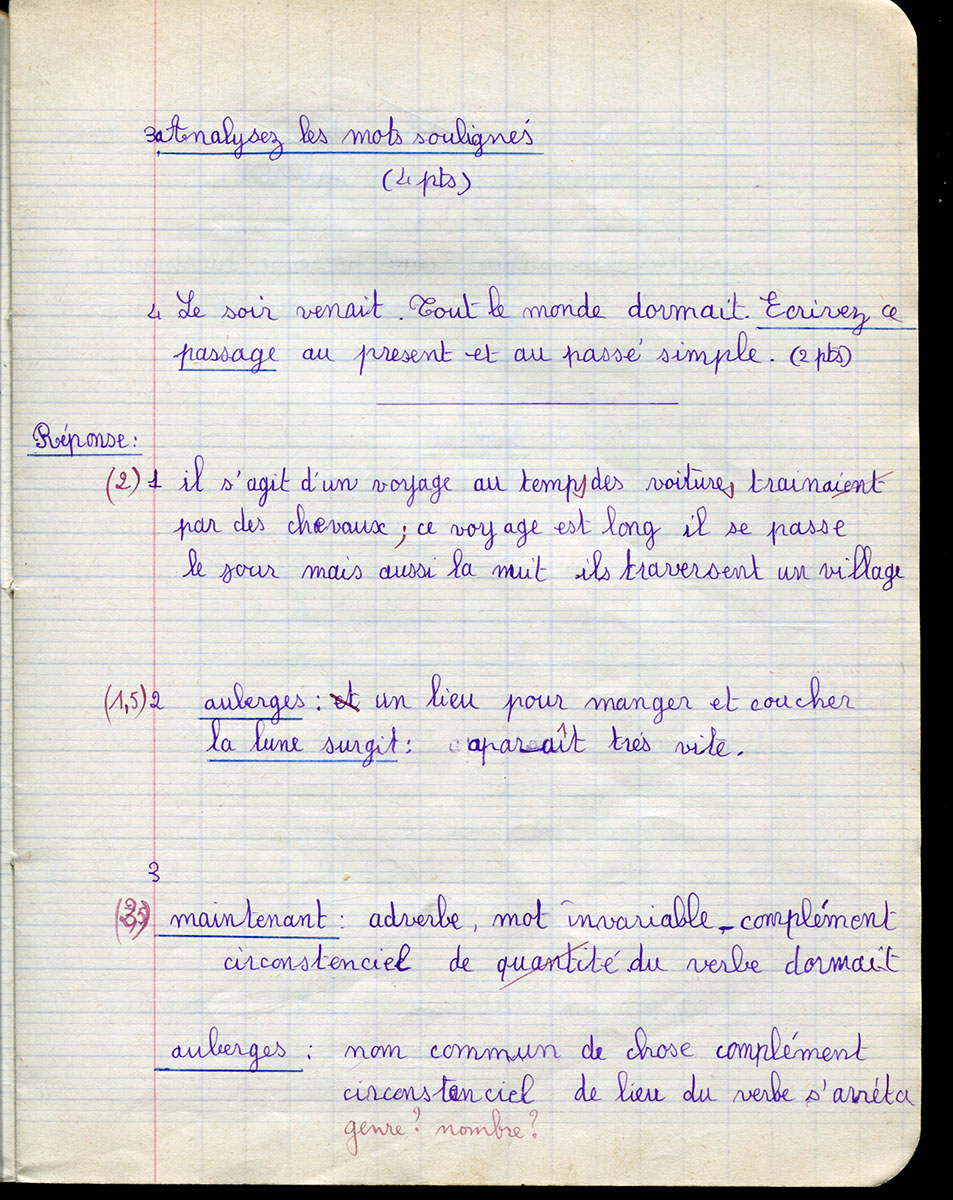 3a Analysez les mots soulignés
(4 pts)
4 Le soir venait. Tout le monde dormait. Ecrivez ce
passage au présent et au passé simple. (2 pts)
Réponse:
(2) 1 il s'agit d'un voyage au temps des voitures trainaient
par des chevaux; ce voyage est long il se passe
le jour mais aussi la nuit ils traversent un village
(1,5) 2 auberges: et un lieu pour manger et coucher
la lune surgit: aparaît trés vite.
3
maintenant: adverbe, mot invariable - complément
circonstenciel de quantité du verbe dormait
auberges: nom commun de chose complément
circonstenciel de lieu du verbe s'arréta
genre? nombre?